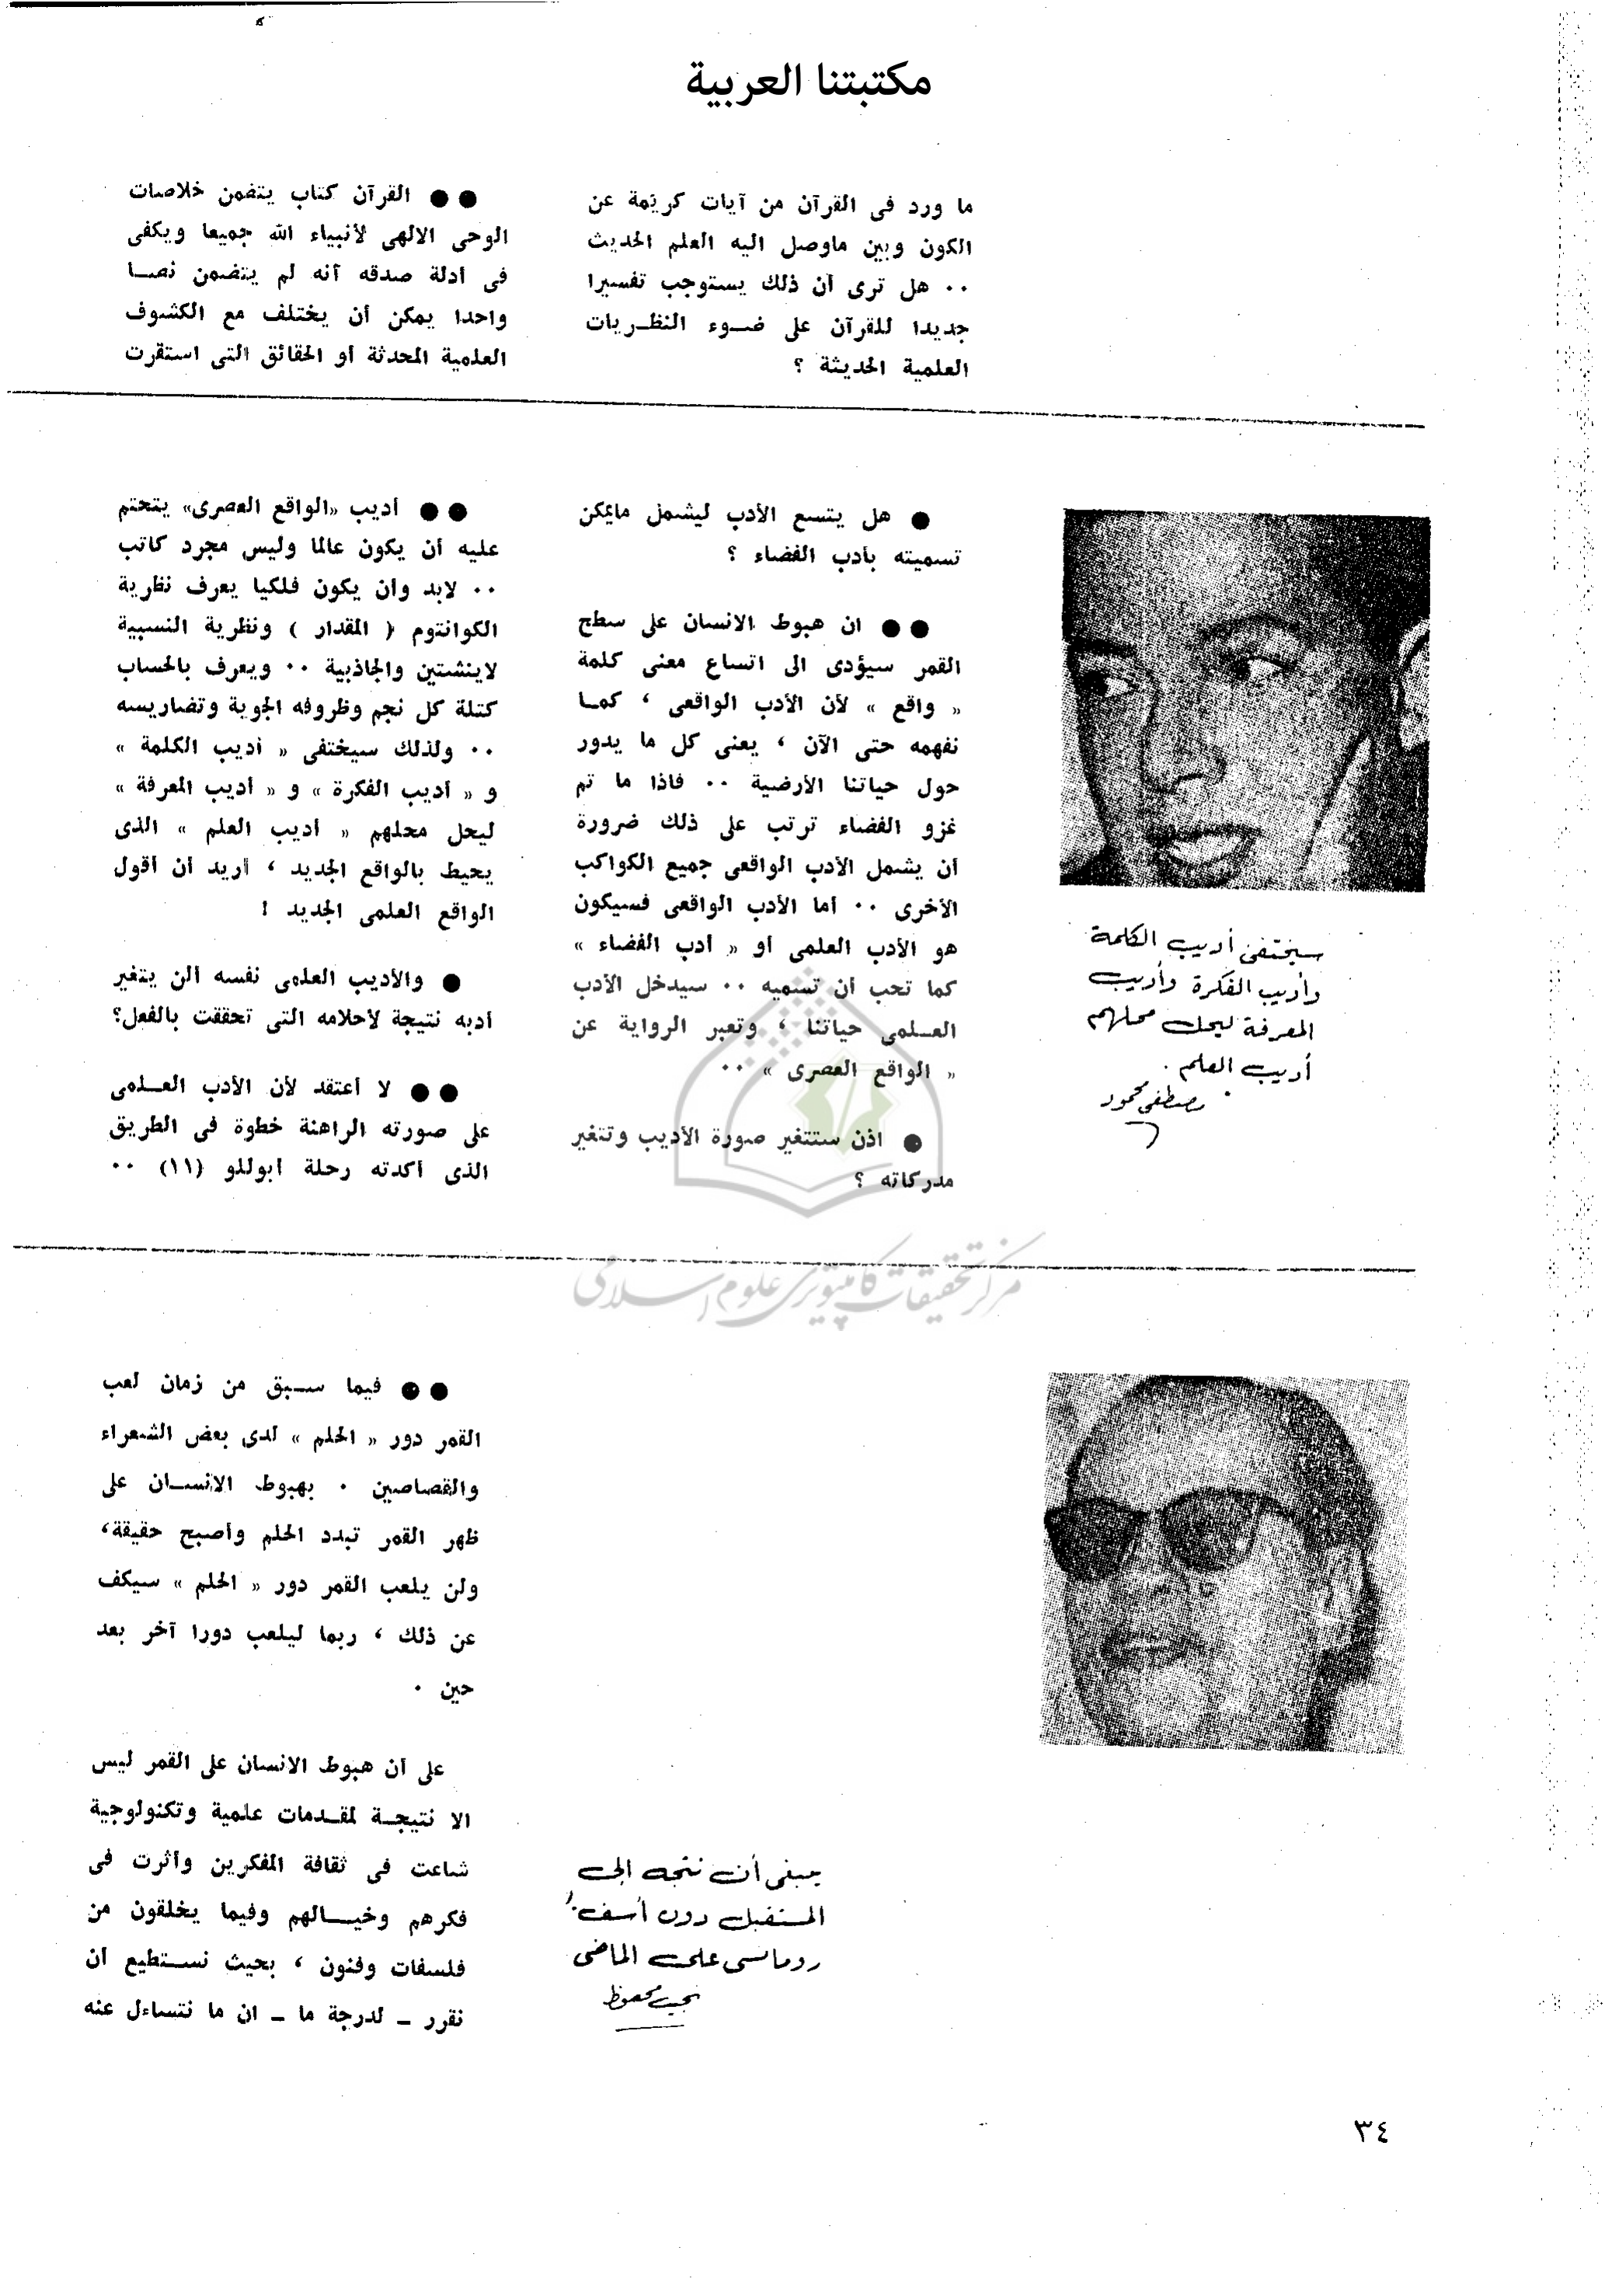 مكتبتنا العربية
ما ورد فى القرآن من آيات كريمة عن
الكون وبين ماوصل اليه العلم الحديث
٠٠ هل ترى أن ذلك يستوجب تفسيرا
جديدا للقرآن على ضـوء النظـريات
العلمية الحديثة ؟
●● القرآن كتاب يتضمن خلاصات
الوحى الالهى لأنبياء الله جميعا ويكفى
فى أدلة صدقه أنه لم يتضمن نصـا
واحدا يمكن أن يختلف مع الكشوف
العلمية المحدثة أو الحقائق التى استقرت
سيختفى أديب الكلمة
وأديب الفكرة وأديب
المعرفة ليحل محلهم
أديب العلم .
مصطفى محمود
● هل يتسع الأدب ليشمل مايمكن
تسميته بأدب الفضاء ؟
●● ان هبوط الانسان على سطح
القمر سيؤدى الى اتساع معنى كلمة
« واقع » لأن الأدب الواقعى ، كمـا
نفهمه حتى الآن ، يعنى كل ما يدور
حول حياتنا الأرضية ٠٠ فاذا ما تم
غزو الفضاء ترتب على ذلك ضرورة
أن يشمل الأدب الواقعى جميع الكواكب
الأخرى ٠٠ أما الأدب الواقعى فسيكون
هو الأدب العلمى أو « أدب الفضاء »
كما تحب أن تسميه ٠٠ سيدخل الأدب
العـلمى حياتنا ، وتعبر الرواية عن
« الواقع العصرى » ٠٠
● اذن ستتغير صورة الأديب وتتغير
مدركاته ؟
●● أديب «الواقع العصرى» يتحتم
عليه أن يكون عالما وليس مجرد كاتب
٠٠ لابد وأن يكون فلكيا يعرف نظرية
الكوانتوم ( المقدار ) ونظرية النسبية
لاينشتين والجاذبية ٠٠ ويعرف بالحساب
كتلة كل نجم وظروفه الجوية وتضاريسه
٠٠ ولذلك سيختفى « أديب الكلمة »
و « أديب الفكرة » و « أديب المعرفة »
ليحل محلهم « أديب العلم » الذى
يحيط بالواقع الجديد ، أريد أن أقول
الواقع العلمى الجديد !
● والأديب العلمى نفسه ألن يتغير
أدبه نتيجة لأحلامه التى تحققت بالفعل؟
●● لا أعتقد لأن الأدب العـلمى
على صورته الراهنة خطوة فى الطريق
الذى أكدته رحلة أبوللو (١١) ٠٠
مركز تحقیقات کامپیوتری علوم اسلامی
ينبغى أن نتجه إلى
المستقبل دون أسف
رومانسى على الماضى
نجيب محفوظ
●● فيما سـبق من زمان لعب
القمر دور « الحلم » لدى بعض الشعراء
والقصاصين ٠ بهبوط الانسـان على
ظهر القمر تبدد الحلم وأصبح حقيقة،
ولن يلعب القمر دور « الحلم » سيكف
عن ذلك ، ربما ليلعب دورا آخر بعد
حين ٠
على أن هبوط الانسان على القمر ليس
الا نتيجـة لمقـدمات علمية وتكنولوجية
شاعت فى ثقافة المفكرين وأثرت فى
فكرهم وخيـالهم وفيما يخلقون من
فلسفات وفنون ، بحيث نسـتطيع أن
نقرر ــ لدرجة ما ــ ان ما نتساءل عنه
٣٤